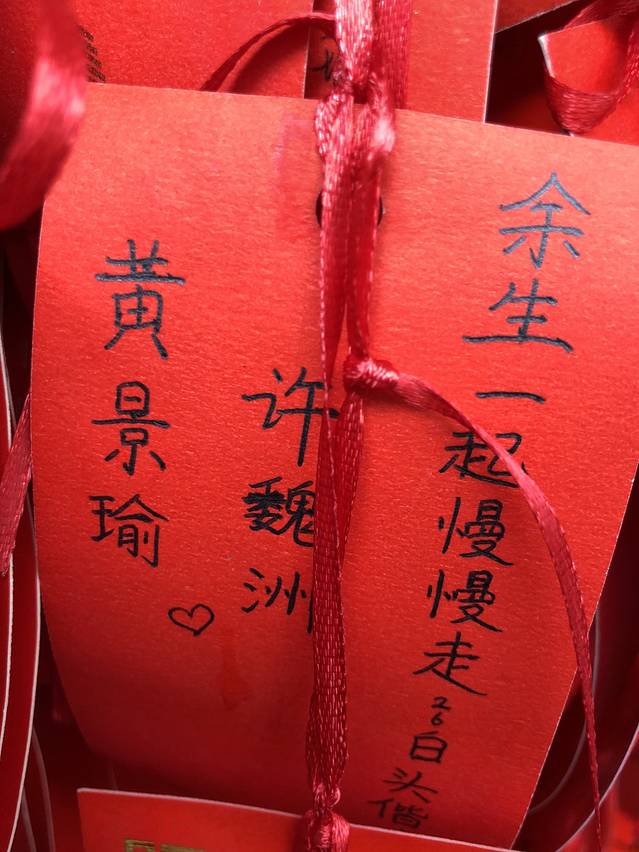 余生一起慢慢走26白头偕
许魏洲
黄景瑜